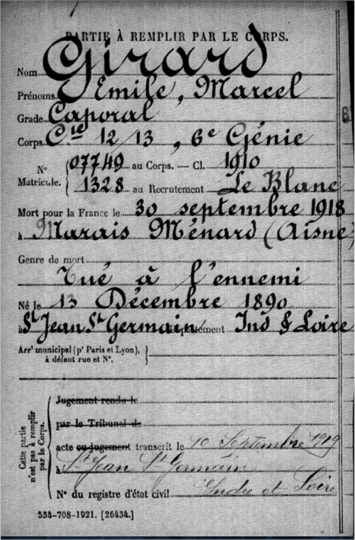 PARTIE À REMPLIR PAR LE CORPS.
Nom GIRARD
Prénoms Emile, Marcel
Grade Caporal
Corps Cie 12/13, 6e Génie
No Matricule. 07749 au Corps. — Cl. 1910
1328 au Recrutement Le Blanc
Mort pour la France le 30 septembre 1918
à Marais Ménard (Aisne)
Genre de mort
Tué à l'ennemi
Né le 13 Décembre 1890
St Jean St Germain Département Ind & Loire
Arrt municipal (pr Paris et Lyon),
à défaut rue et No.
Cette partie n'est pas à remplir par le Corps.
Jugement rendu le
par le Tribunal de
acte ou jugement transcrit le 10 Septembre 1919
à St Jean St Germain
No du registre d'état civil Indre et Loire
534-708-1921. [26434.]